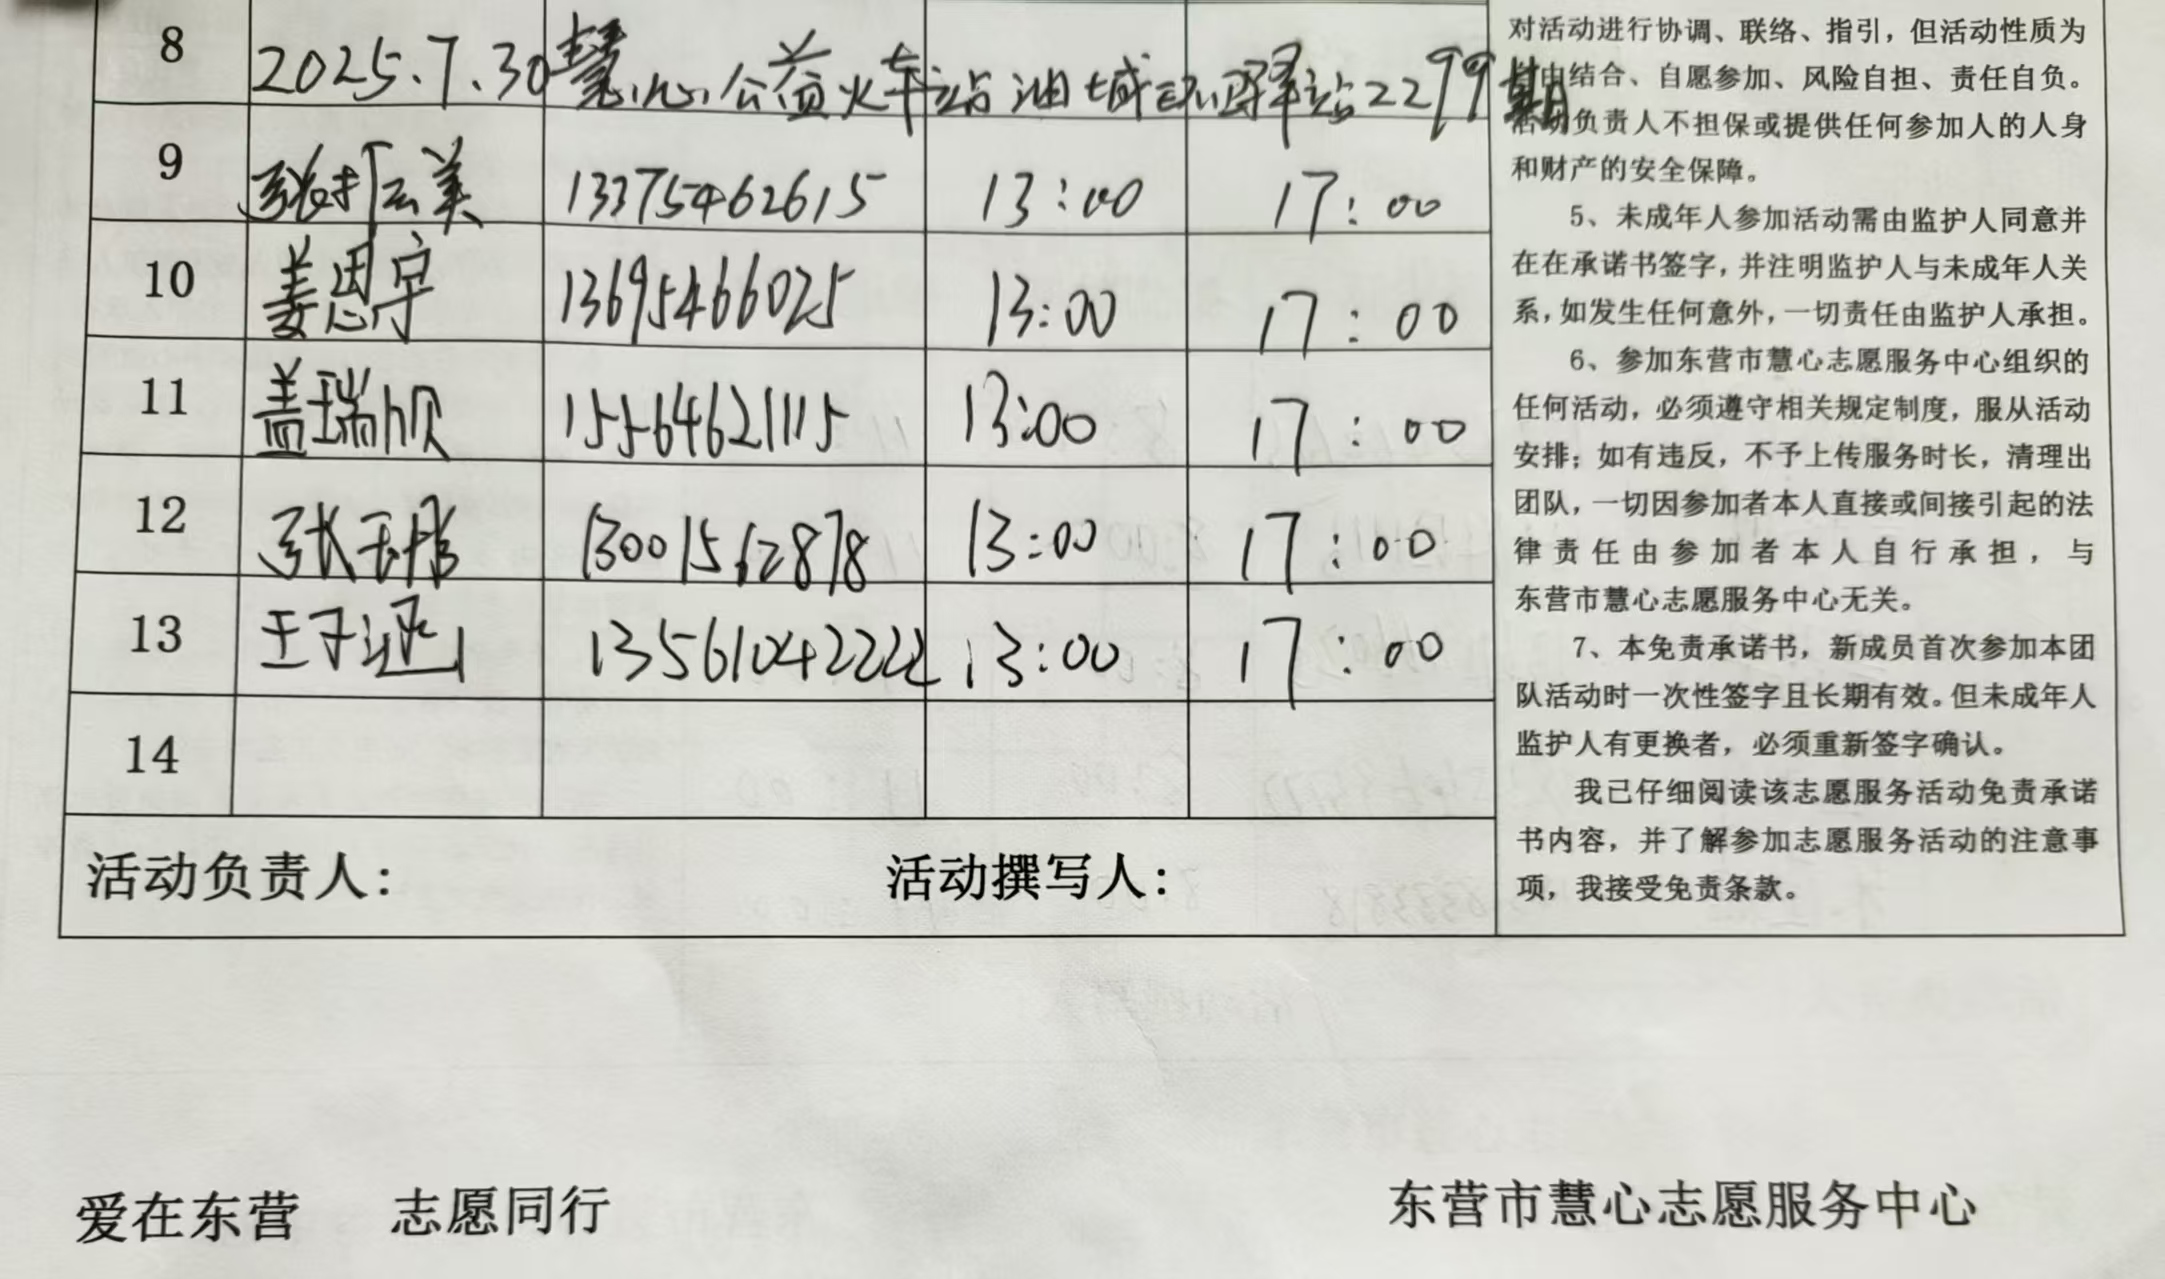 8 2025.7.30慧心公益火车站油城驿站2299期
9 张树云美 13375462615 13:00 17:00
10 姜思宇 13695466025 13:00 17:00
11 盖瑞颀 15564621115 13:00 17:00
12 张玉彤 13001562878 13:00 17:00
13 王子 13561042222 13:00 17:00
14
活动负责人： 活动撰写人：
对活动进行协调、联络、指引，但活动性质为
由结合、自愿参加、风险自担、责任自负。
活动负责人不担保或提供任何参加人的人身
和财产的安全保障。
5、未成年人参加活动需由监护人同意并
在在承诺书签字，并注明监护人与未成年人关
系，如发生任何意外，一切责任由监护人承担。
6、参加东营市慧心志愿服务中心组织的
任何活动，必须遵守相关规定制度，服从活动
安排；如有违反，不予上传服务时长，清理出
团队，一切因参加者本人直接或间接引起的法
律责任由参加者本人自行承担，与
东营市慧心志愿服务中心无关。
7、本免责承诺书，新成员首次参加本团
队活动时一次性签字且长期有效。但未成年人
监护人有更换者，必须重新签字确认。
我已仔细阅读该志愿服务活动免责承诺
书内容，并了解参加志愿服务活动的注意事
项，我接受免责条款。
爱在东营 志愿同行 东营市慧心志愿服务中心